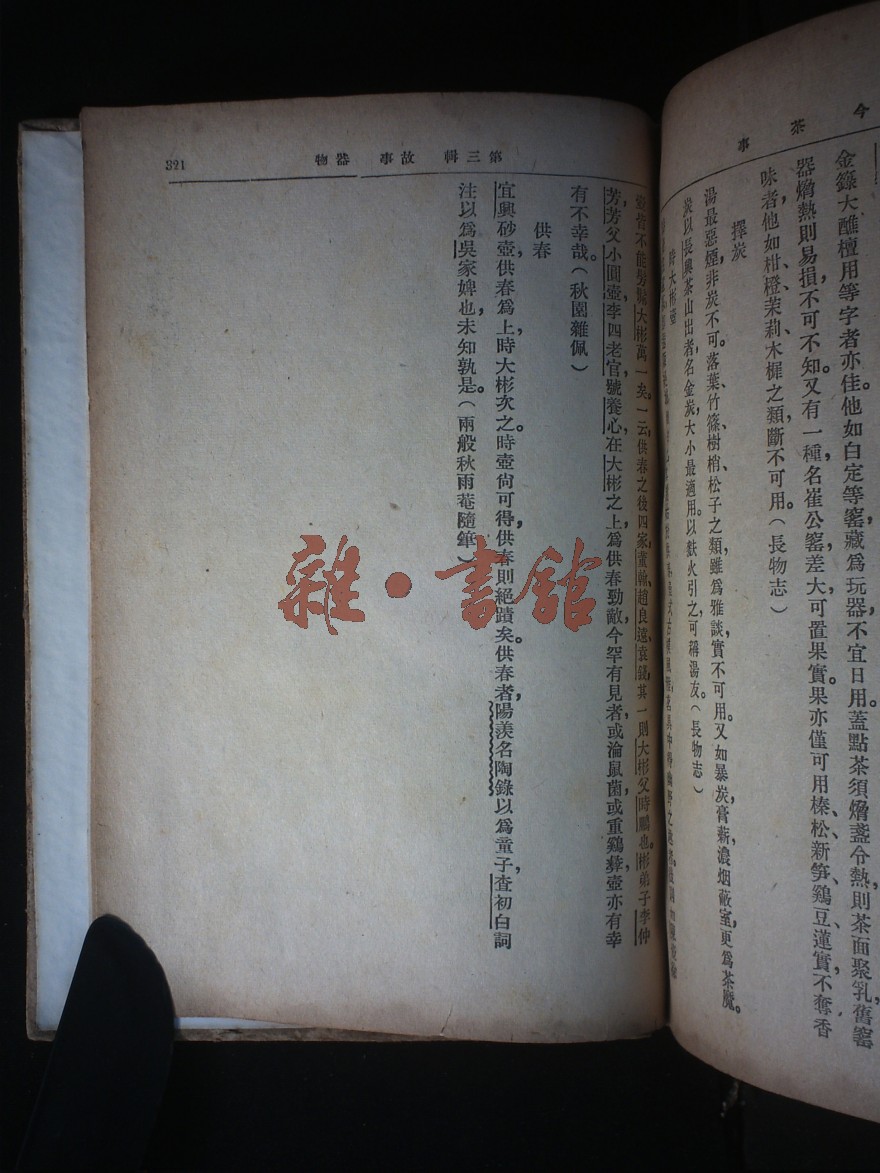 今茶事
金籙大醮檀用等字者亦佳。他如白定等窰，藏爲玩器，不宜日用。蓋點茶須熁盞令熱，則茶面聚乳，舊窰
器熁熱則易損，不可不知。又有一種名崔公窰，差大，可置果實。果亦僅可用榛、松、新筍、鷄豆、蓮實不奪香
味者；他如柑、橙、茉莉、木樨之類，斷不可用。（長物志）
擇炭
湯最惡煙，非炭不可。落葉、竹篠、樹梢、松子之類，雖爲雅談，實不可用。又如暴炭膏薪，濃烟蔽室，更爲茶魔。
炭以長興茶山出者，名金炭，大小最適用，以麩火引之，可稱湯友。（長物志）
時大彬壺
第三輯 故事 器物
321
大彬萬一矣。一云：供春之後四家，董翰、趙良、遠袁、錢，其一則大彬父時鵬也。彬弟子李仲
芳，芳父小圓壺李四老官，號養心，在大彬之上，爲供春勁敵，今罕有見者。或淪鼠菌，或重鷄彝，壺亦有幸
有不幸哉。（秋園雜佩）
供春
宜興砂壺，供春爲上，時大彬次之。時壺尚可得，供春則絕蹟矣。供春者，陽羨名陶錄以爲童子，查初白詞
注以爲吳家婢也，未知孰是。（兩般秋雨菴隨筆）
雜·書館